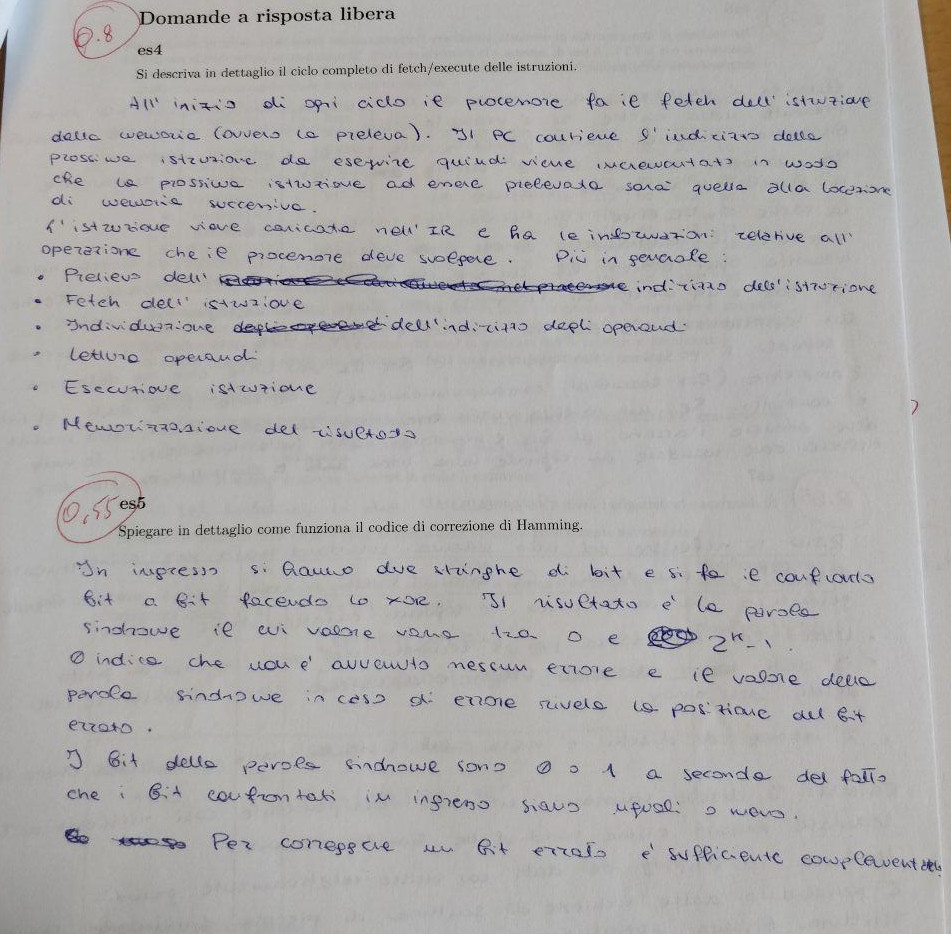 0.8
Domande a risposta libera
es4
Si descriva in dettaglio il ciclo completo di fetch/execute delle istruzioni.
All' inizio di ogni ciclo il processore fa il fetch dell' istruzione
dalla memoria (ovvero la preleva). Il PC contiene l'indirizzo della
prossima istruzione da eseguire quindi viene incrementato in modo
che la prossima istruzione ad essere prelevata sarà quella alla locazione
di memoria successiva.
L'istruzione viene caricata nell' IR e ha le informazioni relative all'
operazione che il processore deve svolgere. Più in generale :
• Prelievo dell' indirizzo dell'istruzione
• Fetch dell' istruzione
• Individuazione dell'indirizzo degli operandi
• Lettura operandi
• Esecuzione istruzione
• Memorizzazione del risultato
0,55
es5
Spiegare in dettaglio come funziona il codice di correzione di Hamming.
In ingresso si hanno due stringhe di bit e si fa il confronto
bit a bit facendo lo XOR. Il risultato è la parola
sindrome il cui valore varia tra 0 e 2^K-1.
0 indica che non è avvenuto nessun errore e il valore della
parola sindrome in caso di errore rivela la posizione del bit
errato.
I bit della parola sindrome sono 0 o 1 a seconda del fatto
che i bit confrontati in ingresso siano uguali o meno.
Per correggere un bit errato è sufficiente